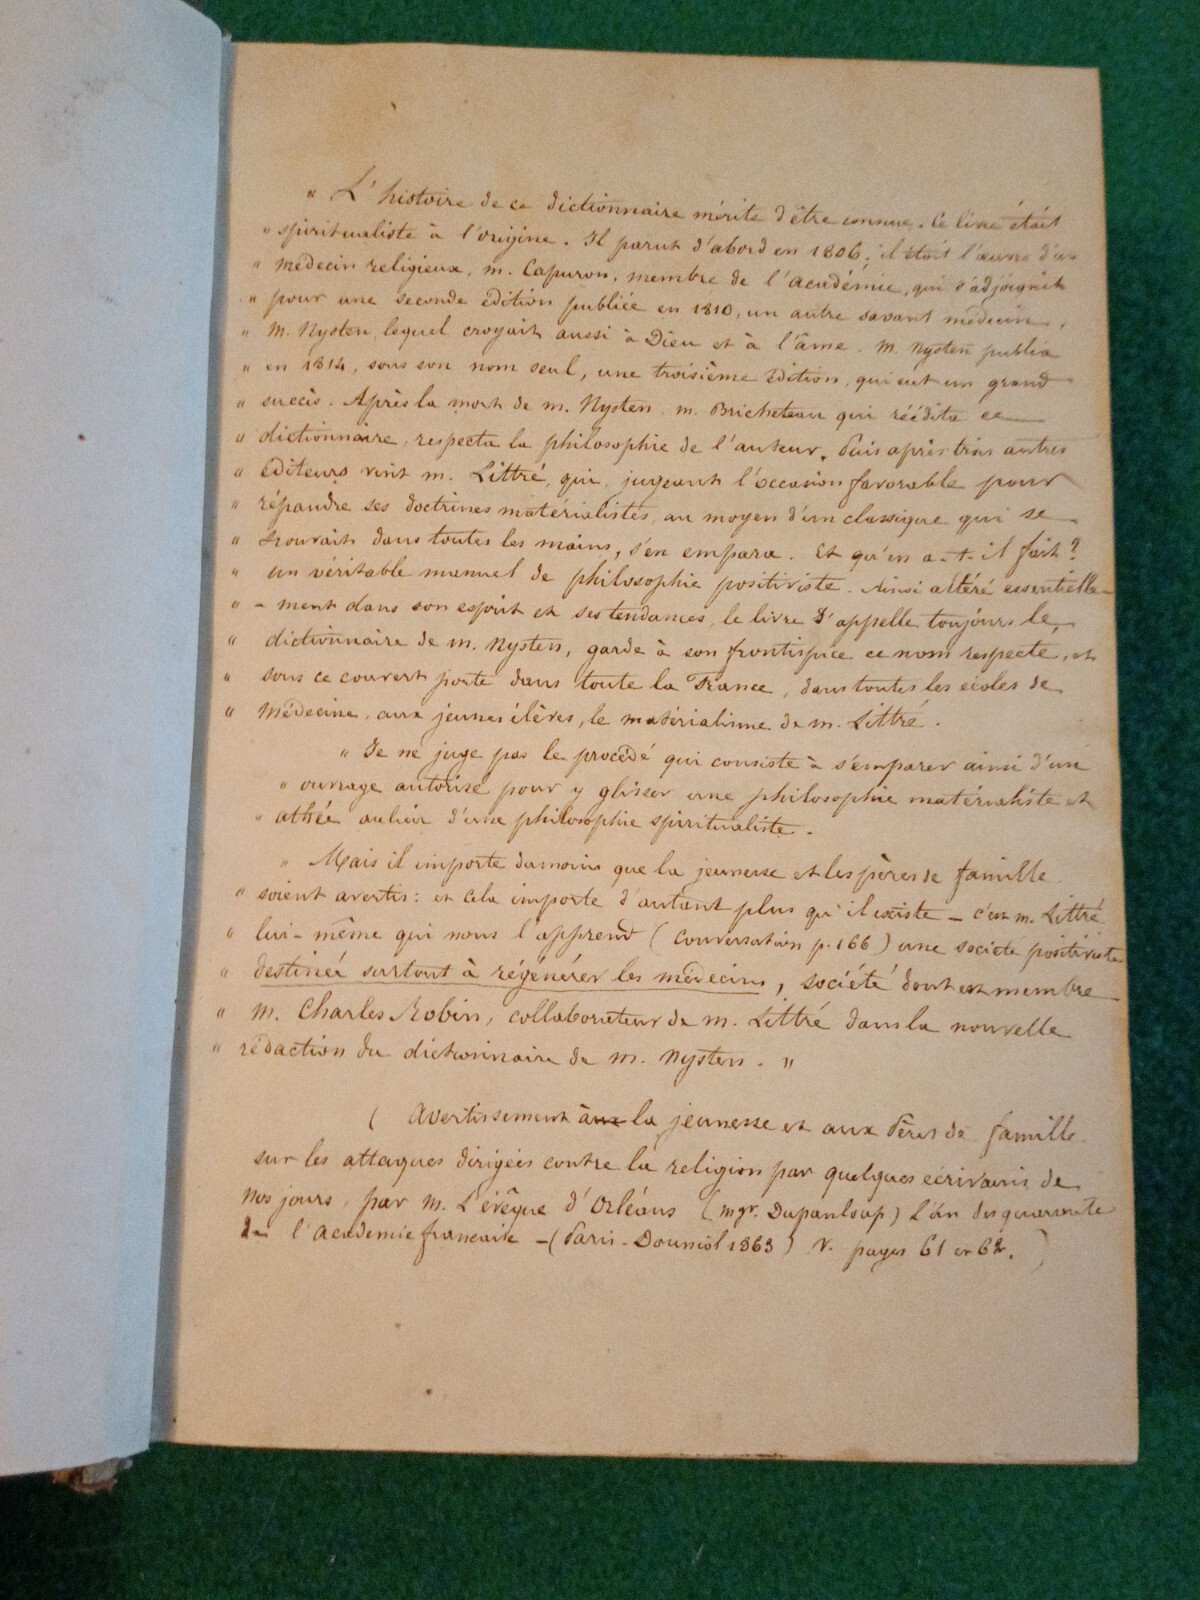 " L'histoire de ce dictionnaire mérite d'être connue. Ce livre était
" spiritualiste à l'origine. Il parut d'abord en 1806; il était l'œuvre d'un
" médecin religieux, m. Capuron, membre de l'académie, qui s'adjoignit
" pour une seconde édition publiée en 1810, un autre savant médecin,
" M. Nysten, lequel croyait aussi à Dieu et à l'âme. M. Nysten publia
" en 1814, sous son nom seul, une troisième édition, qui eut un grand
" succès. Après la mort de m. Nysten, m. Bricheteau qui réédita ce
" dictionnaire, respecta la philosophie de l'auteur. Puis après trois autres
" éditeurs vint m. Littré, qui, jugeant l'occasion favorable pour
" répandre ses doctrines matérialistes, au moyen d'un classique qui se
" trouvait dans toutes les mains, s'en empara. Et qu'en a-t-il fait?
" un véritable manuel de philosophie positiviste. Ainsi altéré essentielle-
" - ment dans son esprit et ses tendances, le livre s'appelle toujours le,
" dictionnaire de m. Nysten, garde à son frontispice ce nom respecté, et
" sous ce couvert porte dans toute la France, dans toutes les écoles de
" Médecine, aux jeunes élèves, le matérialisme de m. Littré.
" Je ne juge pas le procédé qui consiste à s'emparer ainsi d'un
" ouvrage autorisé pour y glisser une philosophie matérialiste et
" athée au lieu d'une philosophie spiritualiste.
" Mais il importe du moins que la jeunesse et les pères de famille
" soient avertis: et cela importe d'autant plus qu'il existe - c'est m. Littré
" lui-même qui nous l'apprend (Conversation p. 166) une société positiviste
" destinée surtout à régénérer les médecins, société dont est membre
" M. Charles Robin, collaborateur de m. Littré dans la nouvelle
" rédaction du dictionnaire de m. Nysten. "
( Avertissement aux la jeunesse et aux Pères de famille
sur les attaques dirigées contre la religion par quelques écrivains de
nos jours, par m. L'évêque d'Orléans (mgr. Dupanloup) L'un des quarante
de l'Académie française - (Paris - Douniol 1863) V. pages 61 et 62. )